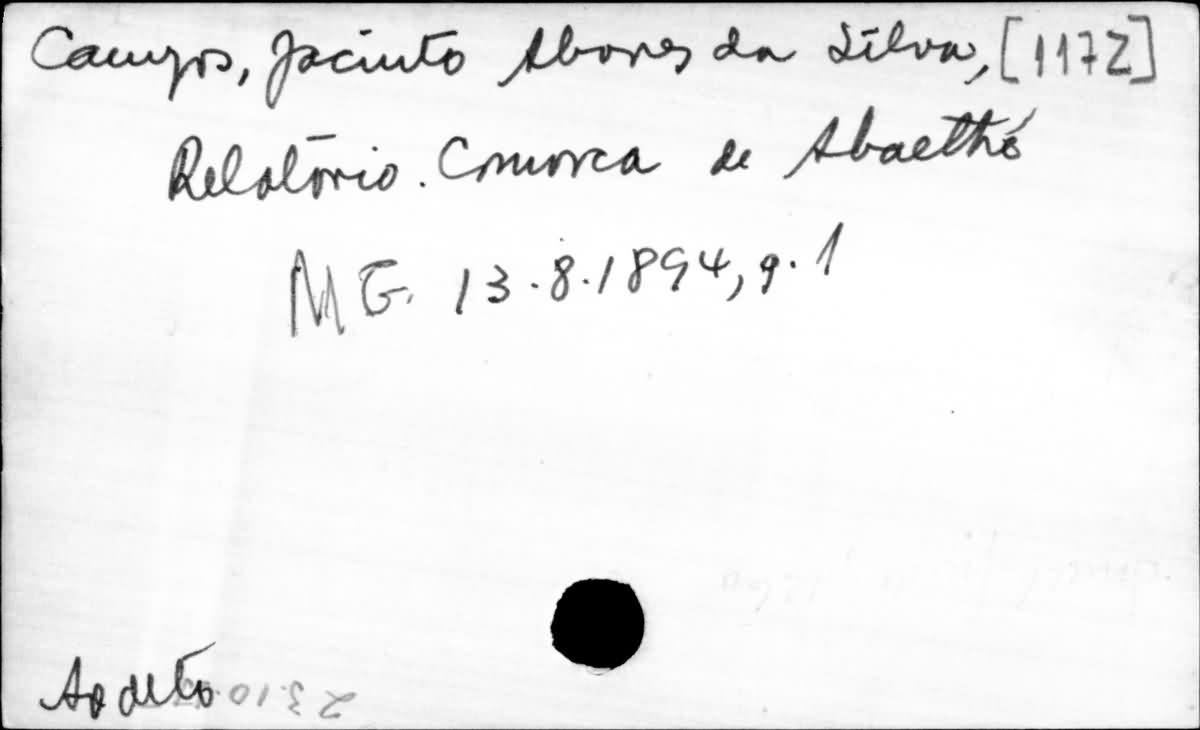 Campos, Jacinto Alvares da Silva, [1172]
Relatório. Comarca de Abaethé
MG. 13.8.1894, p. 1